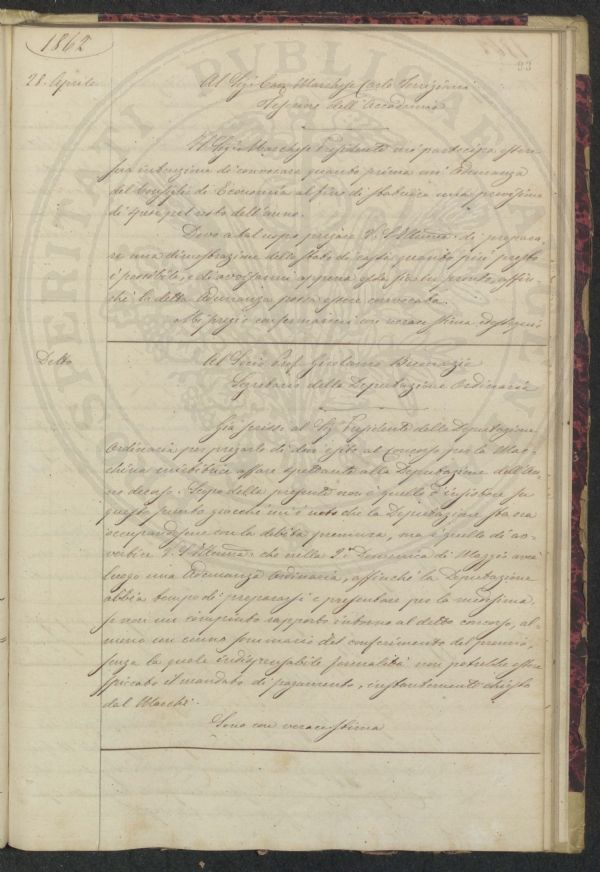 1862
93
28. Aprile
Al Sigr. Cav. Marchese Carlo
Tesoriere dell'Accademia
Il Sigr. Marchese Presidente mi partecipa essere
sua intenzione di convocare quanto prima un'Adunanza
del Consiglio di Economia al fine di stabilire una previsione
di spese pel resto dell'anno.
Devo a tal uopo pregare V. S. Illma. di prepara-
re una dimostrazione dello stato di cassa quanto più presto
è possibile, e di avvisarmi appena essa sia in pronto, affin-
chè la detta Adunanza possa essere convocata.
Mi pregio confermarmi con verace stima ed ossequio
Detto
Al Socio Prof. Girolamo
Segretario della Deputazione Ordinaria
Già scrissi al Sig. Presidente della Deputazione
Ordinaria per pregarlo di dare esito al concorso per la Mac-
china affare spettante alla Deputazione dell'An-
no decorso. Scopo della presente non è quello d'insistere su
questo punto giacchè mi è noto che la Deputazione sta ora
occupandosene con la debita premura, ma è quello di av-
vertire V. S. Illma. che nella 2a. Domenica di Maggio avrà
luogo una Adunanza Ordinaria, affinchè la Deputazione
abbia tempo di prepararsi e presentare per la medesima,
se non un compiuto rapporto intorno al detto concorso, al-
meno un cenno sommario del conferimento del premio,
senza la quale indispensabile formalità non potrebbe essere
spiccato il mandato di pagamento, instantemente chiesto
dal Macchi.
Sono con verace stima